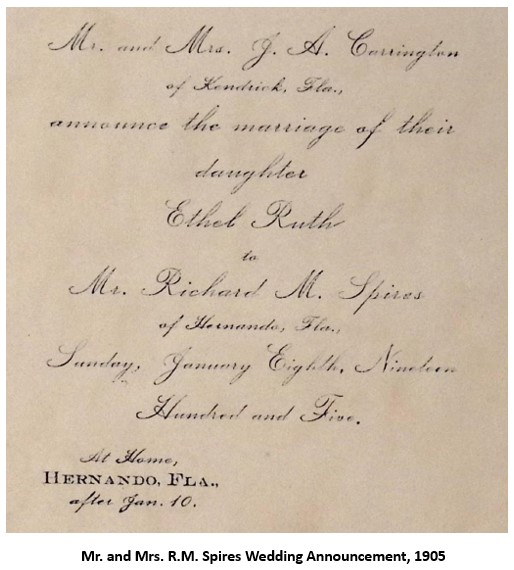 Mr. and Mrs. J. A. Carrington
of Kendrick, Fla.,
announce the marriage of their
daughter
Ethel Ruth
to
Mr. Richard M. Spires
of Hernando, Fla.,
Sunday, January Eighth, Nineteen
Hundred and Five.
At Home,
HERNANDO, FLA.,
after Jan. 10.
Mr. and Mrs. R.M. Spires Wedding Announcement, 1905